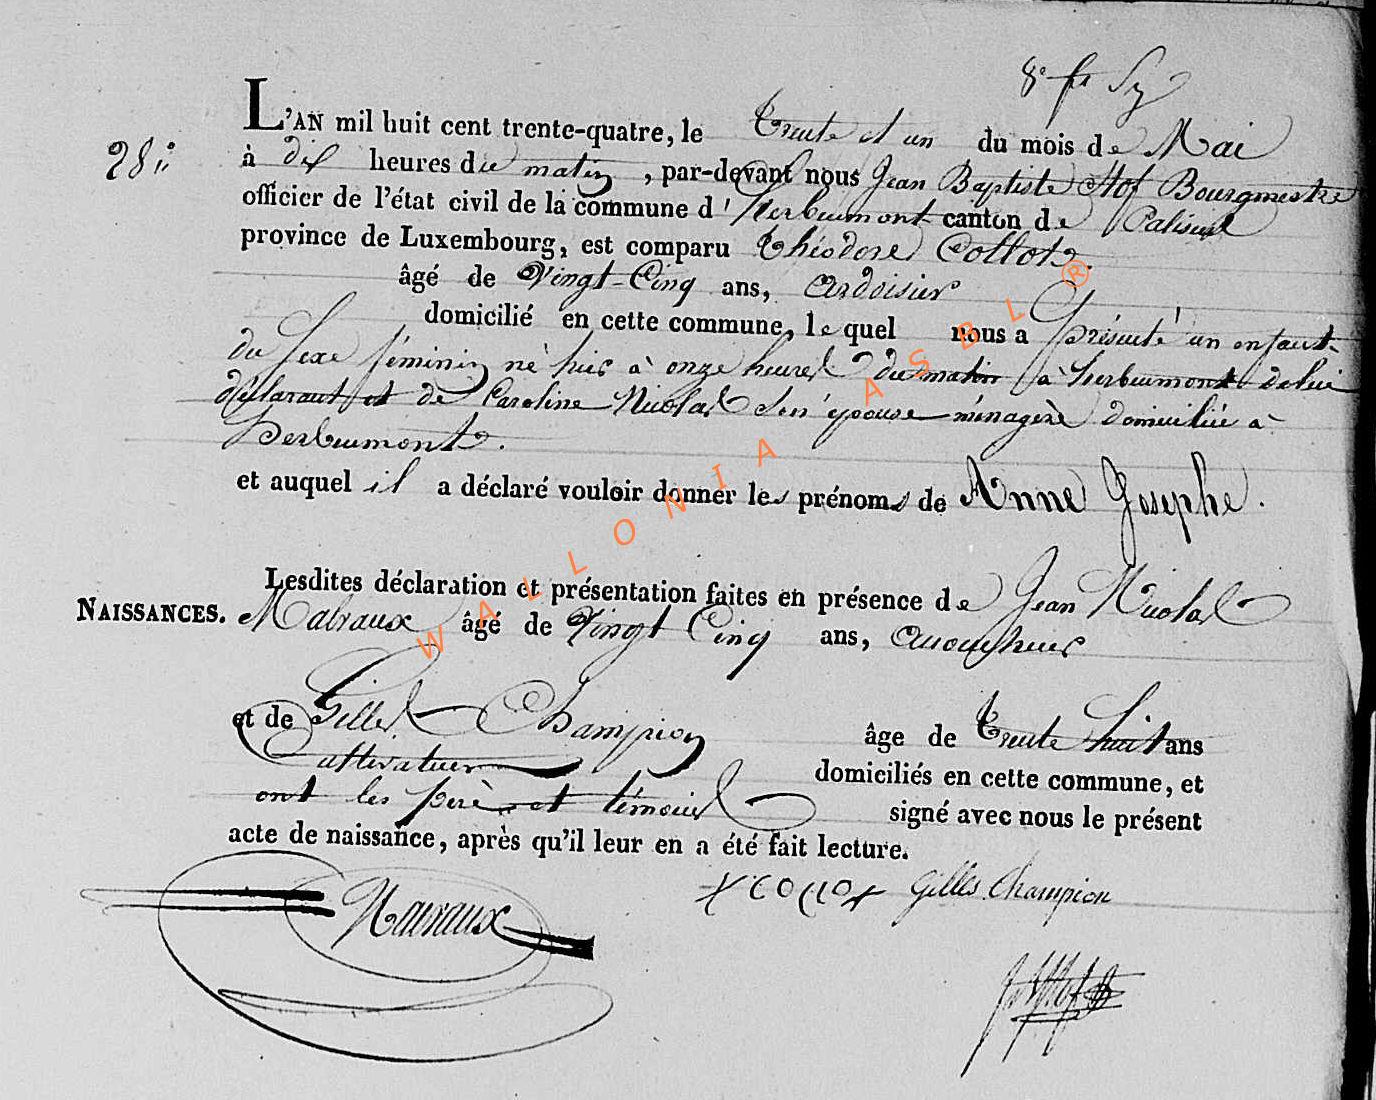 8e fr Sy
L'AN mil huit cent trente-quatre, le Trente et un du mois de Mai
28ii
à dix heures du matin, par-devant nous Jean Baptiste Hof Bourgmestre
officier de l'état civil de la commune d'herbeumont canton de Paliseul
province de Luxembourg, est comparu Théodore Collot.
âgé de Vingt-Cinq ans, Ardoisier
domicilié en cette commune, lequel nous a présenté un enfant
du sexe féminin né hier à onze heures du matin à herbeumont de lui
déclarant et de Caroline Nicolas Son épouse ménagère domiciliée à
herbeumont.
et auquel il a déclaré vouloir donner les prénoms de Anne Josephe.
Lesdites déclaration et présentation faites en présence de Jean Nicolas
NAISSANCES.
Malvaux âgé de Vingt Cinq ans, accoucheur
et de Gilles Champion âge de Trente huit ans
cultivateur domiciliés en cette commune, et
ont les père et témoins signé avec nous le présent
acte de naissance, après qu'il leur en a été fait lecture.
Malvaux
t collot
Gilles Champion
WALLONIA ASBL ®